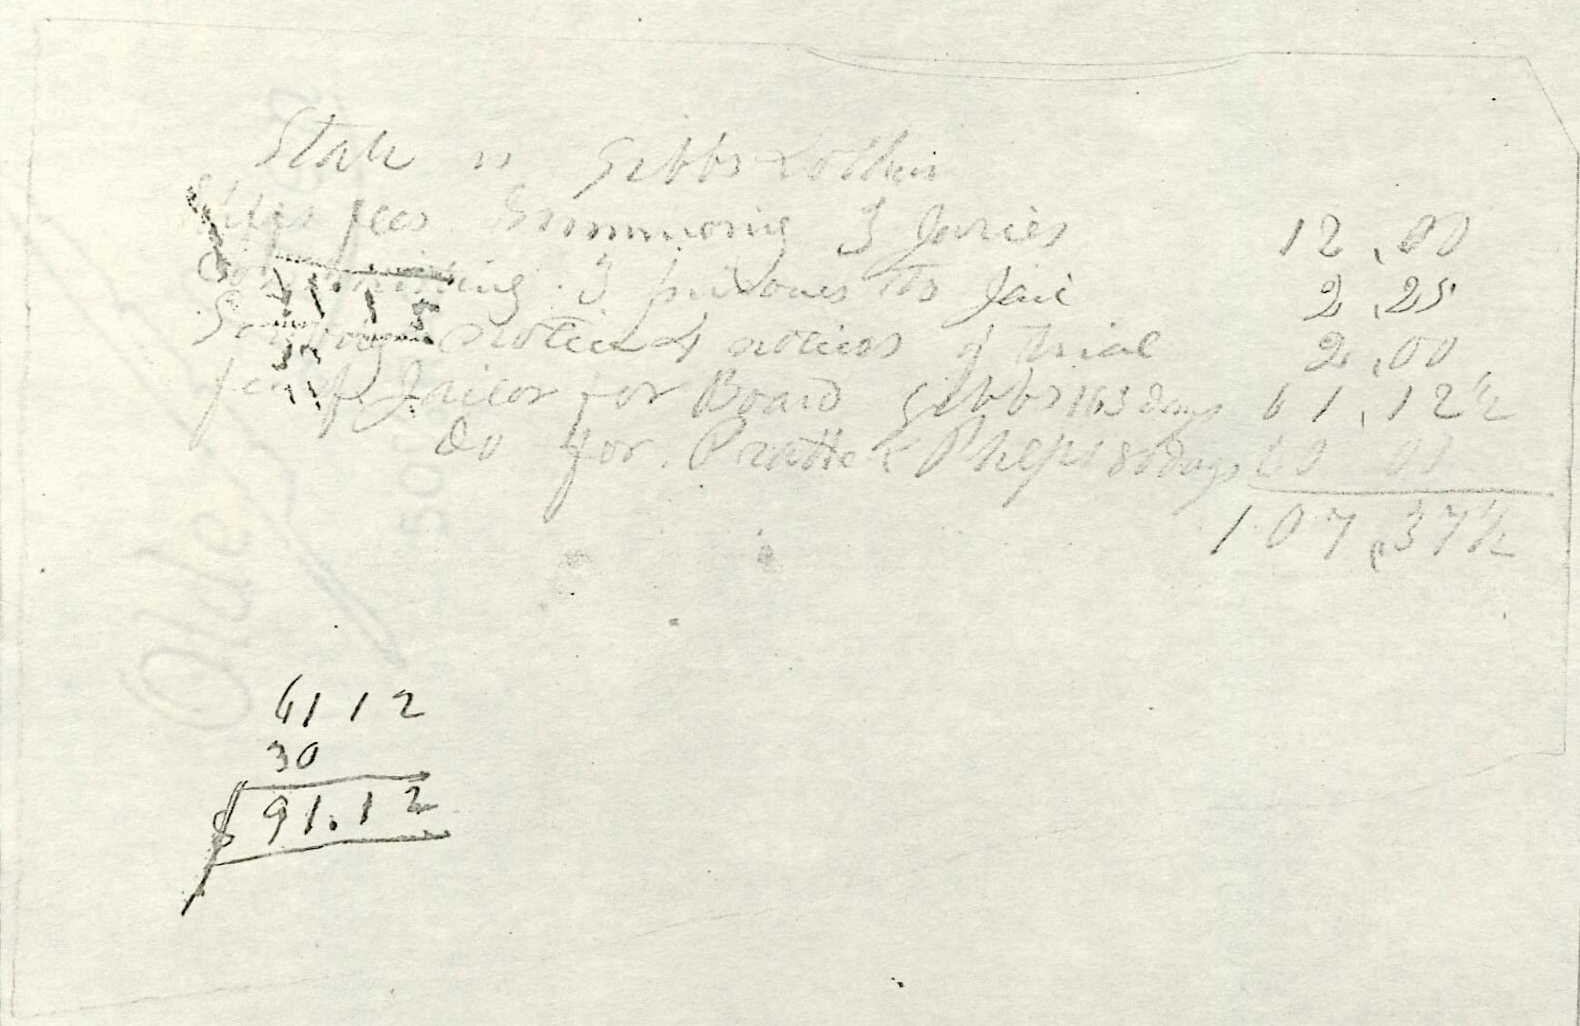 State vs Gibbs & others
fees Summoning 3 Juries 12.00
Committing 3 prisoners to Jail 2.25
notices of trial 2.00
fees of Jailor for Board Gibbs 163 days 61.12½
Do for Pratte & Phelps 80 days 30 00
107.37½
6112
30
$91.12